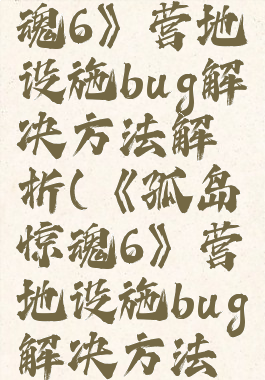 魂6》营地
设施bug解
决方法解
析(《孤岛
惊魂6》营
地设施bug
解决方法